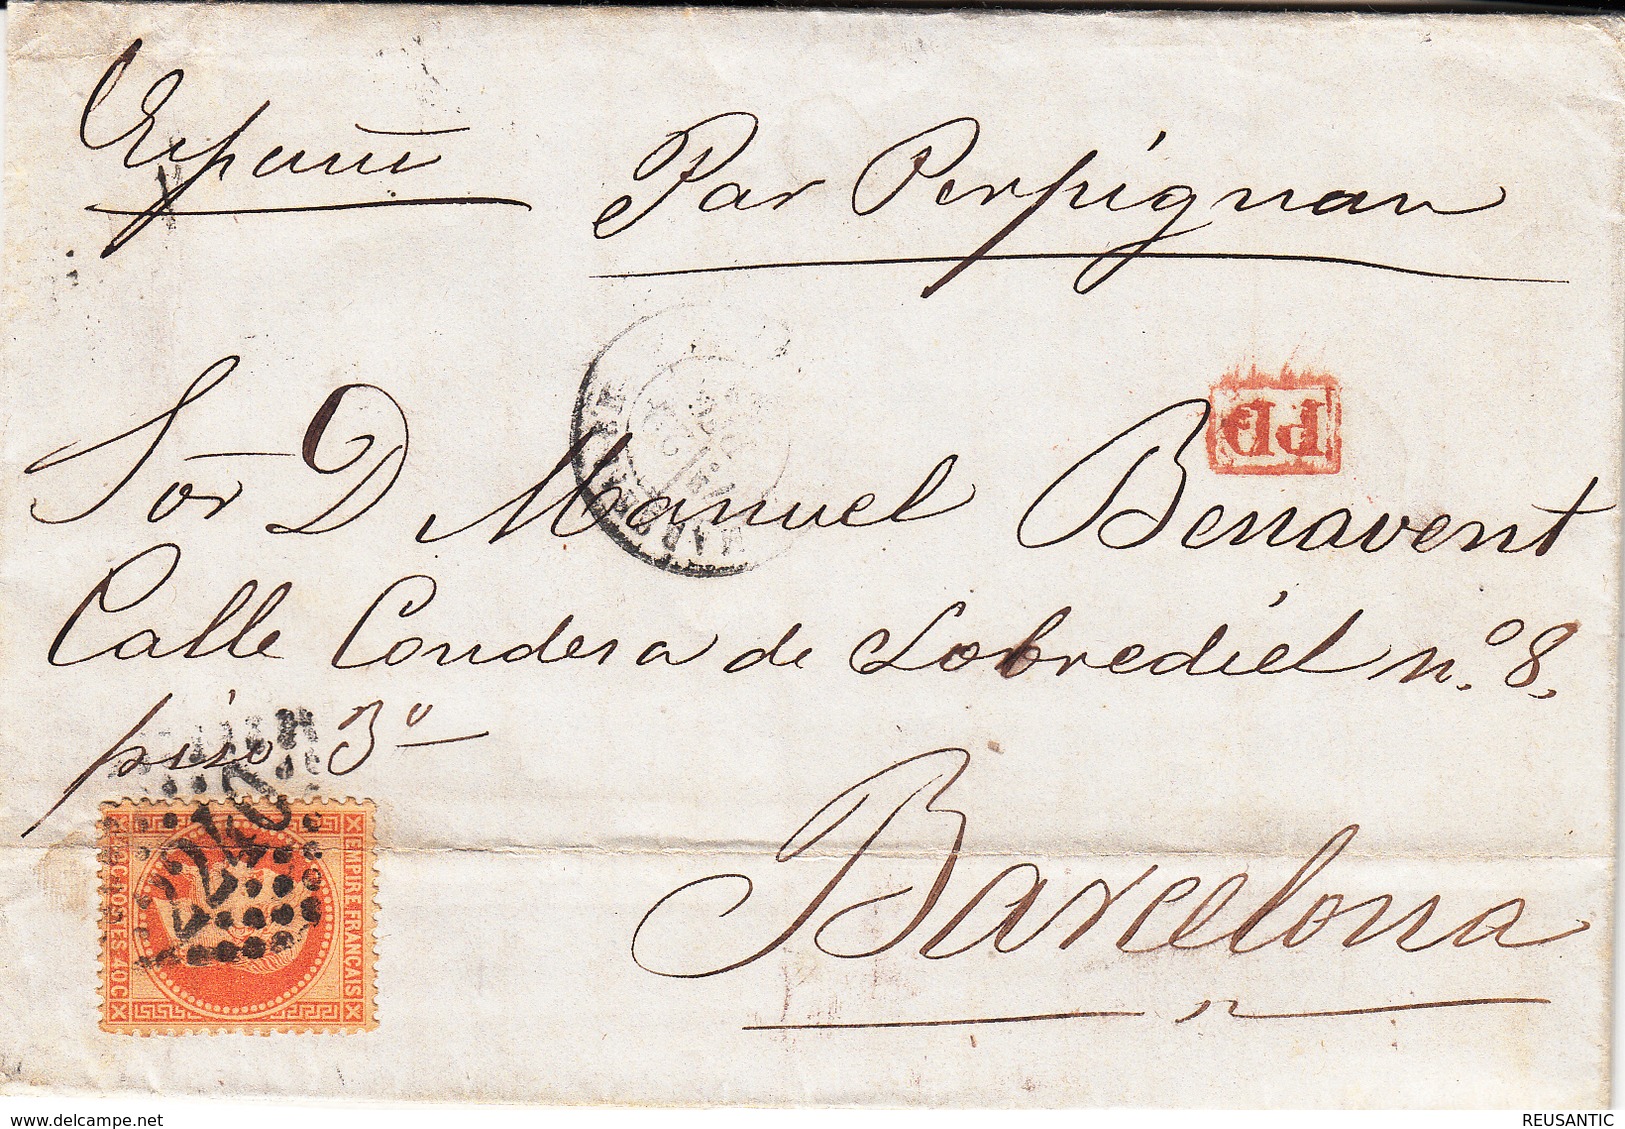 España
Par Perpignan
PD
Sor D Manuel Benavent
Calle Condesa de Sobrediel nº 8.
piso 3º
Barcelona
2240
EMPIRE FRANÇAIS
POSTES 40C
delcampe.net
REUSANTIC